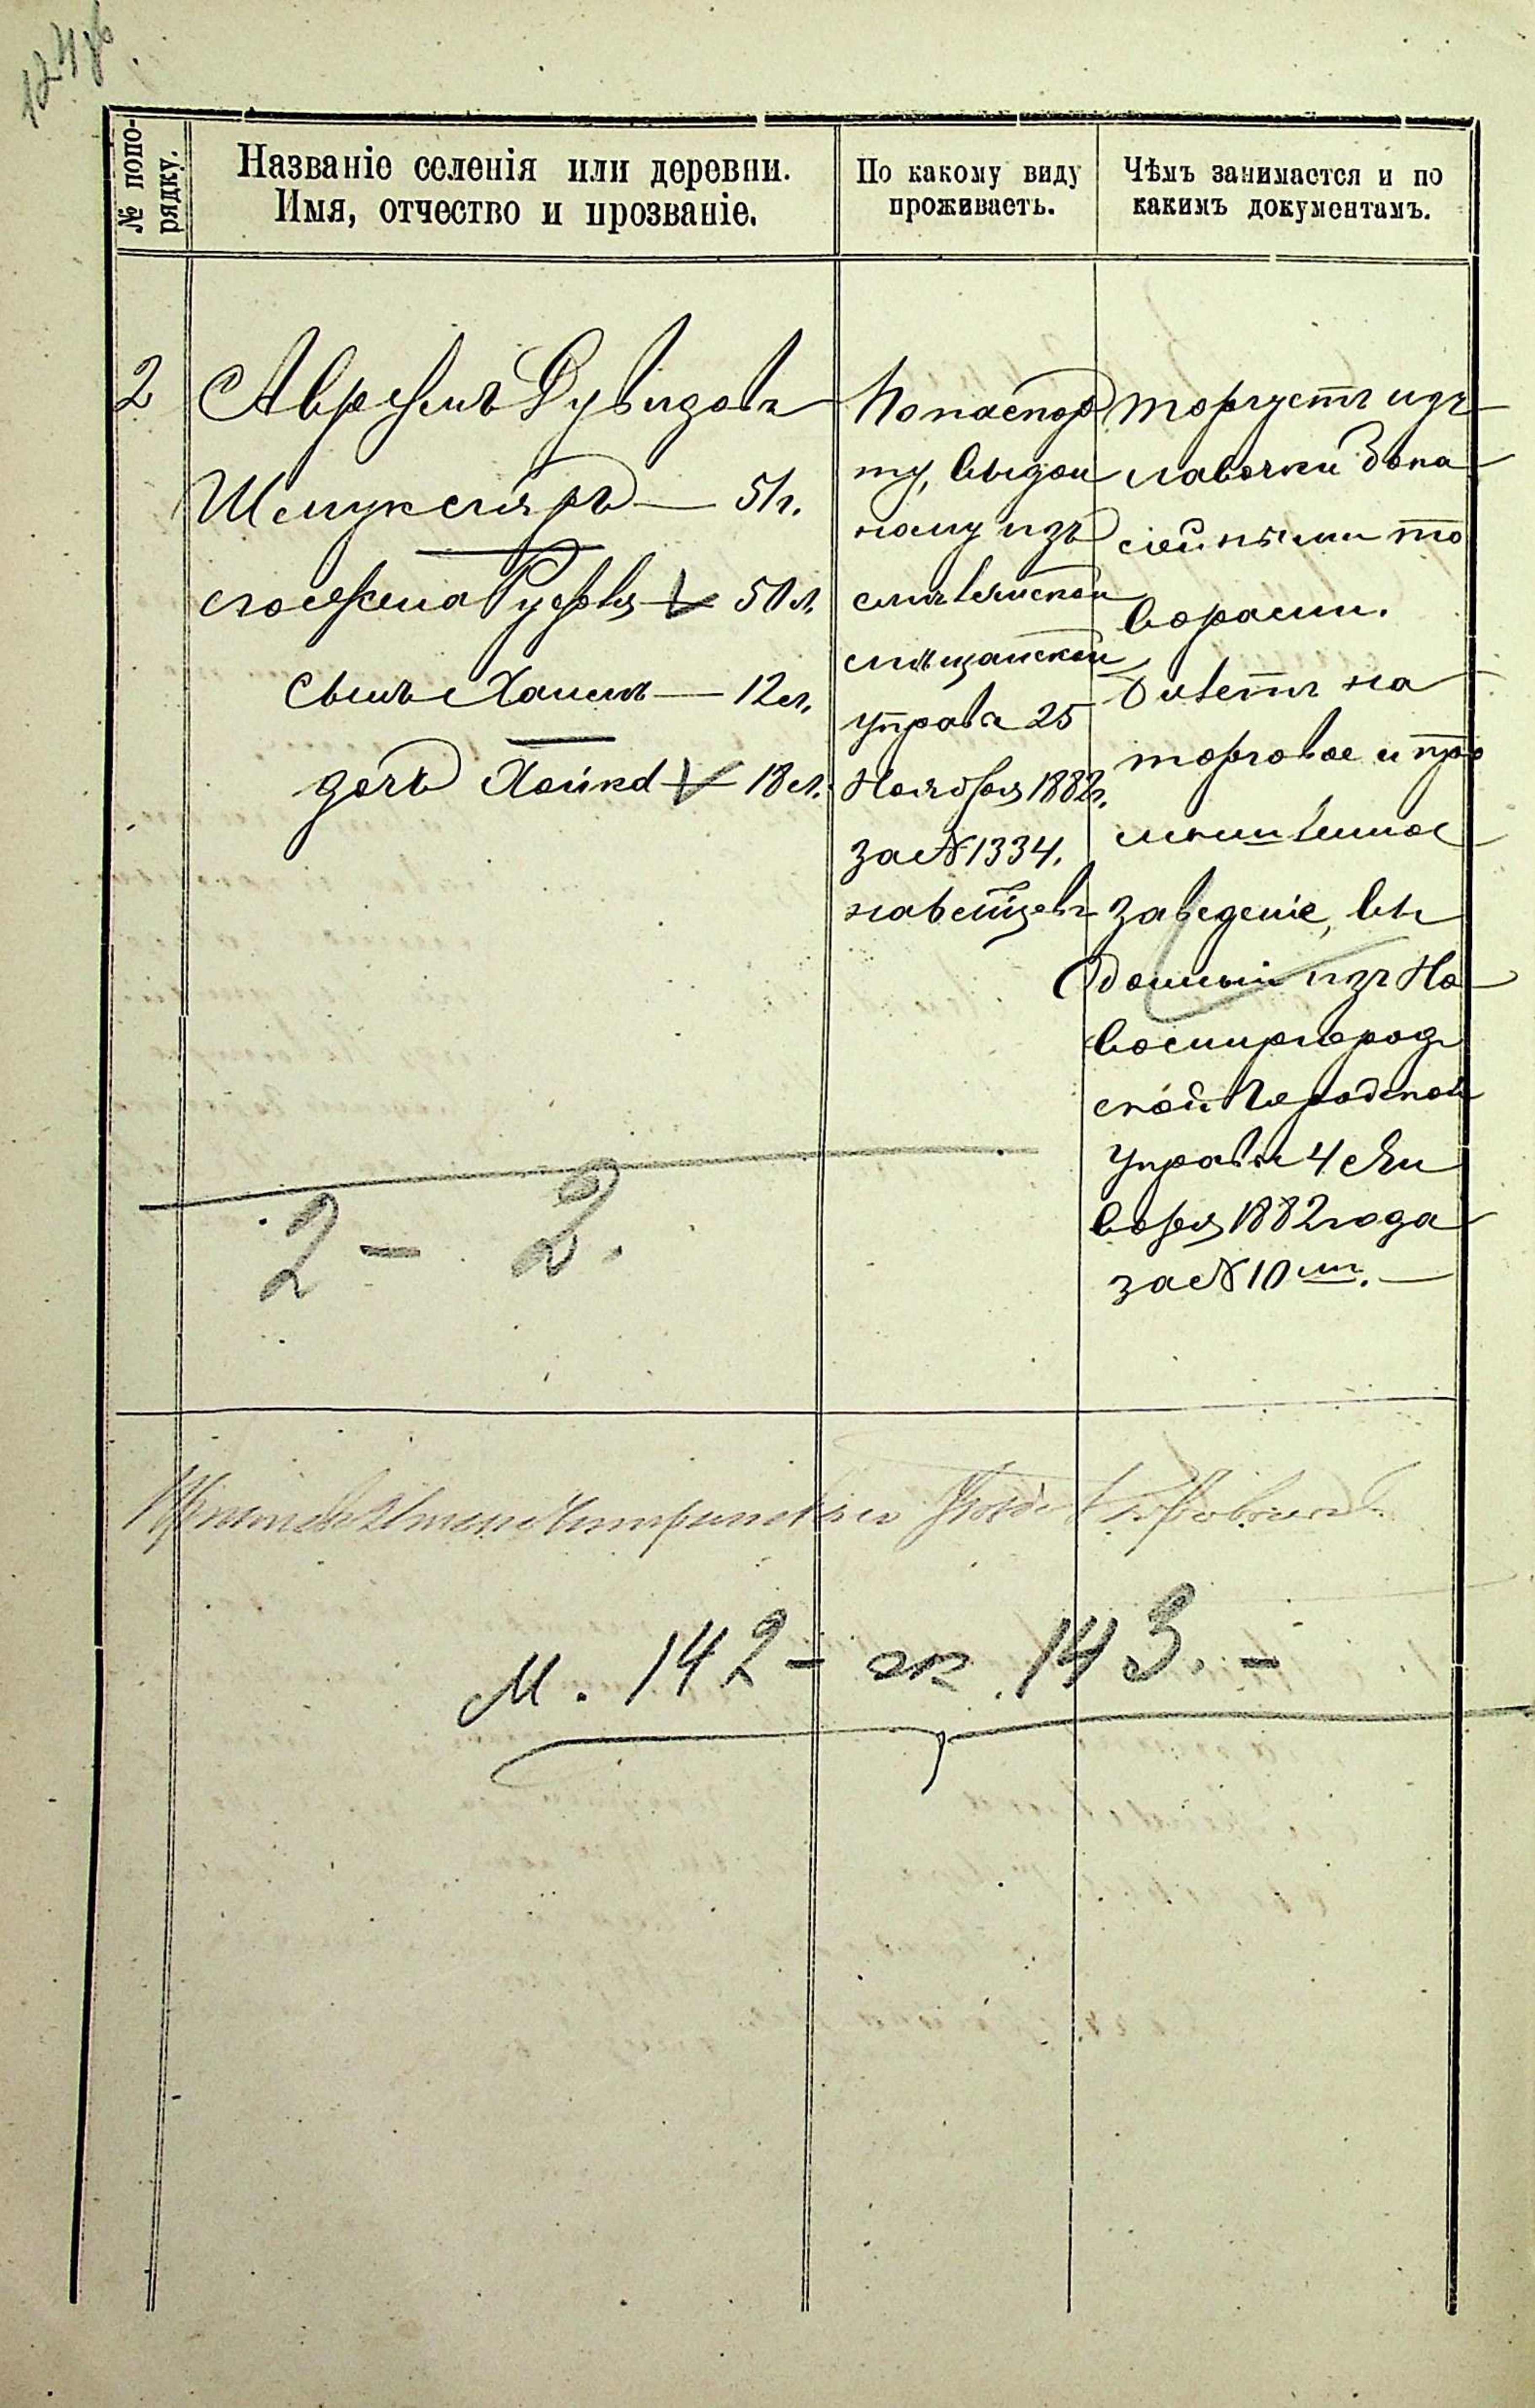 № попо-
рядку.
Названіе селенія или деревни.
Имя, отчество и прозваніе.
По какому виду
проживаетъ.
Чѣмъ занимается и по
какимъ документамъ.
2
Аврумъ Дувидовъ
Шмуклеръ — 51 г.
его жена Руфля 50 л.
сынъ Хаимъ — 12 л.
дочь Хайка 18 л.
По паспор
ту, выдан
ному изъ
мѣщанской
управы 25
Ноября 1882 г.
за № 1334.
на вѣтцевъ
торгуетъ изъ
лавочки бака
лейными то
варами.
билетъ на
торговое и про
мышленное
заведеніе, вы
данный изъ Но
вомиргород
ской Городской
Управы 4 Ян
варя 1882 года
за № 10 мъ. —
2 — 2.
М. 142 - ж. 143. -